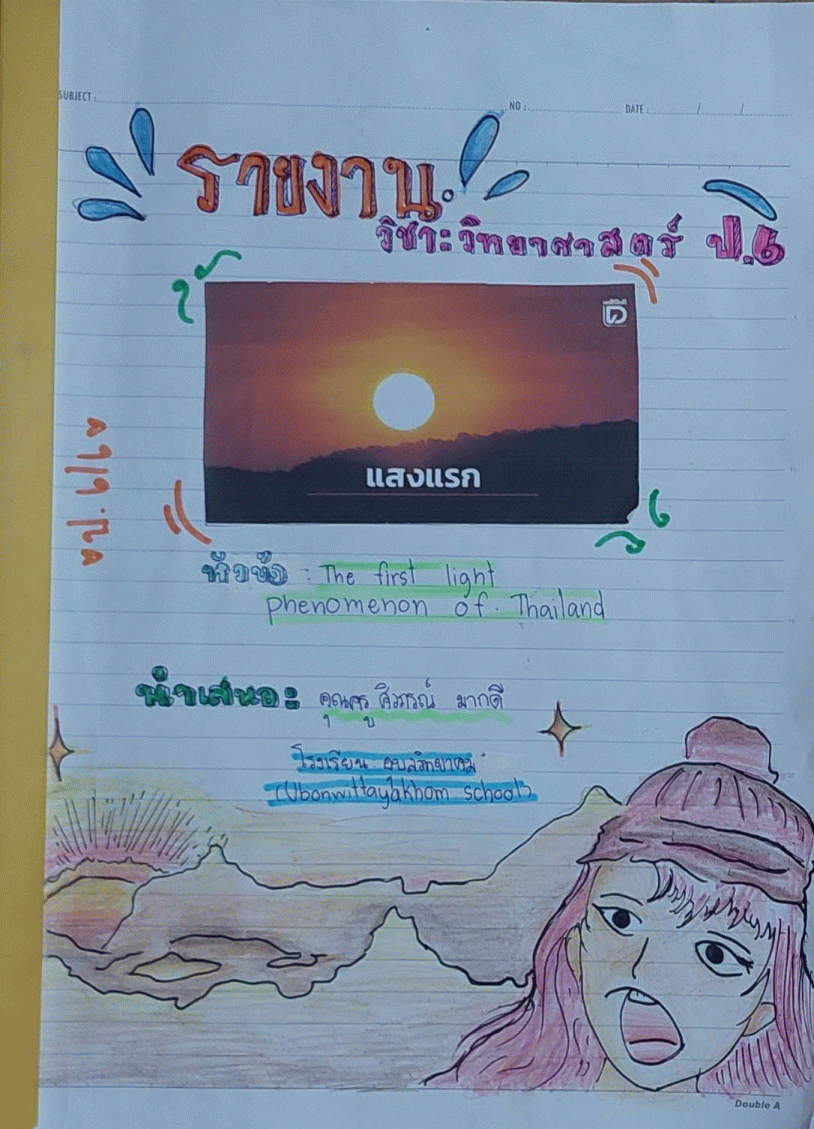 SUBJECT :
NO :
DATE : / /
รายงาน
วิชา:วิทยาศาสตร์ ป.6
แสงแรก
หัวข้อ : The first light
phenomenon of Thailand
นำเสนอ: คุณครู ศิวภรณ์ มากดี
โรงเรียน อุบลวิทยาคม
(Ubonwittayakhom school)
Double A